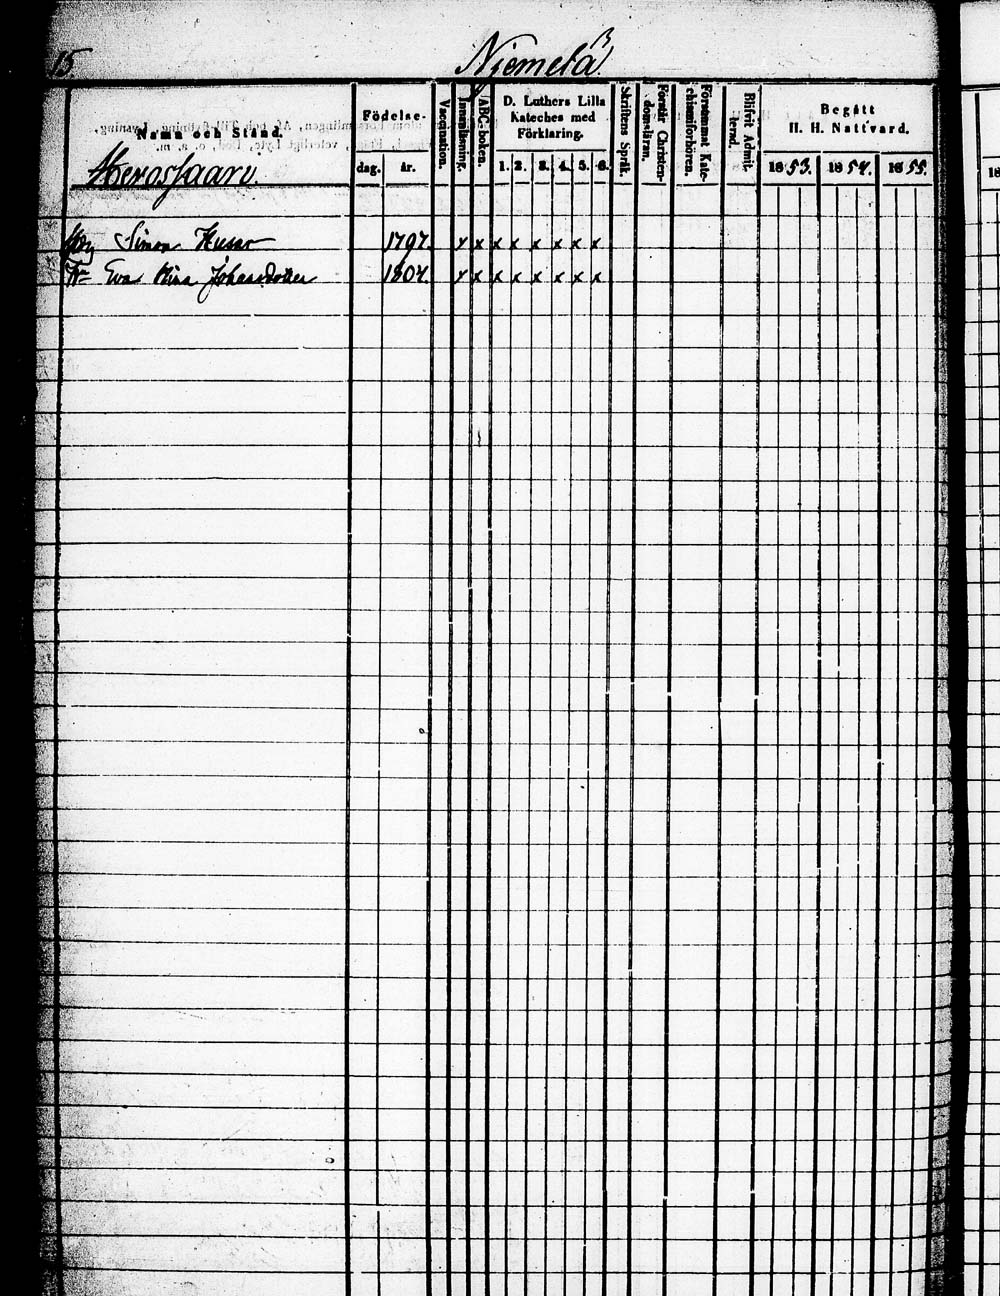 15.
Njemelä
Namn och Stånd.
Födelse-
dag. år.
Vaccination.
Innanläsning.
ABC-boken.
D. Luthers Lilla
Kateches med
Förklaring.
1. 2. 3. 4. 5. 6.
Skriftens Språk.
Förstår Christen-
domsläran.
Försummat Kate-
chismiförhören.
Blifvit Admit-
terad.
Begått
H. H. Nattvard.
1853. 1854. 1855.
18
Simon Husar 1797. x x x x x x x x
Hu Eva Stina Johansdotter 1807. x x x x x x x x